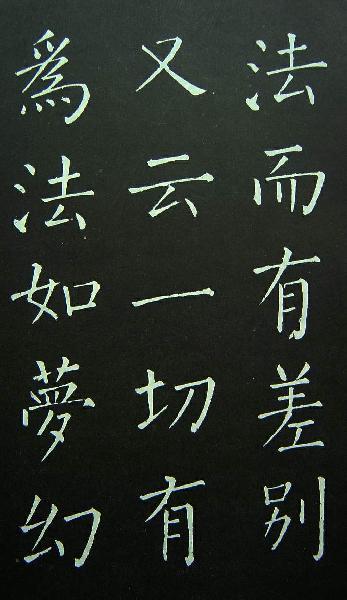 法而有差别
又云一切有
為法如夢幻